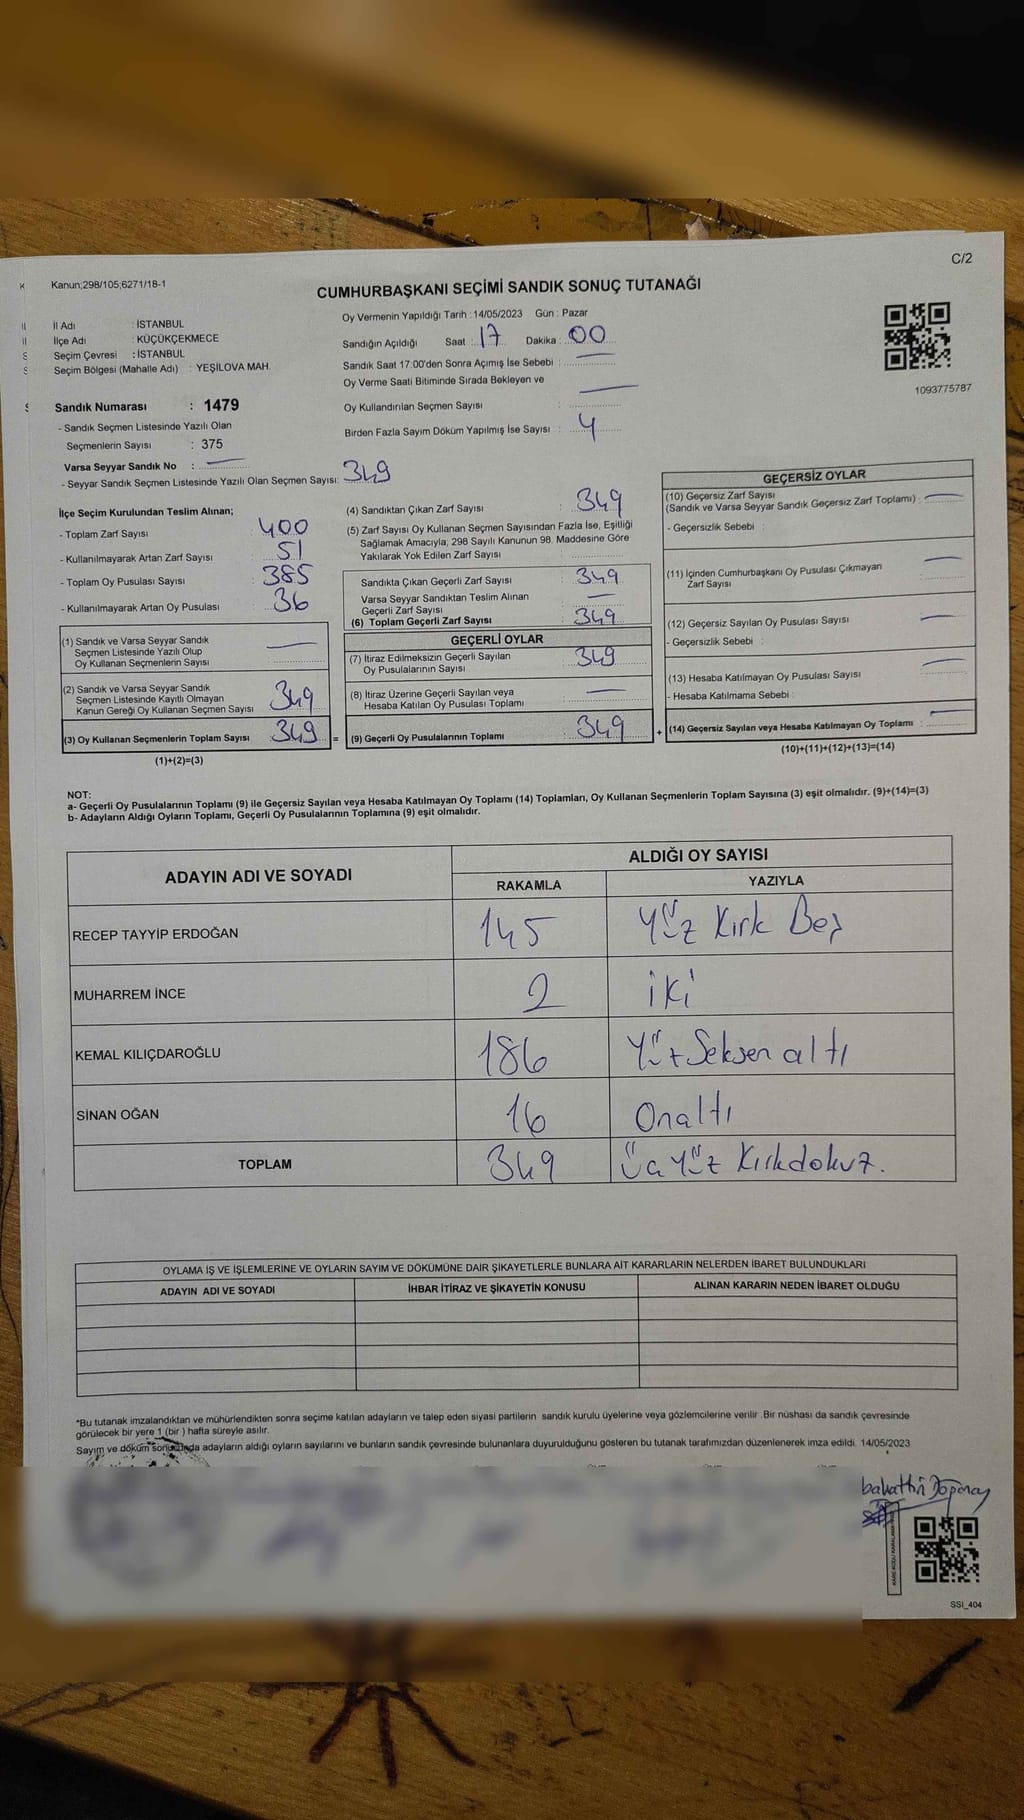 C/2
Kanun;298/105;6271/18-1
CUMHURBAŞKANI SEÇİMİ SANDIK SONUÇ TUTANAĞI
İl Adı : İSTANBUL
İlçe Adı : KÜÇÜKÇEKMECE
Seçim Çevresi : İSTANBUL
Seçim Bölgesi (Mahalle Adı) : YEŞİLOVA MAH.
Oy Vermenin Yapıldığı Tarih : 14/05/2023 Gün : Pazar
Sandığın Açıldığı Saat : 17 Dakika : 00
Sandık Saat 17:00'den Sonra Açımış İse Sebebi :
Oy Verme Saati Bitiminde Sırada Bekleyen ve
Oy Kullandırılan Seçmen Sayısı :
Birden Fazla Sayım Döküm Yapılmış İse Sayısı : 4
1093775787
Sandık Numarası : 1479
- Sandık Seçmen Listesinde Yazılı Olan
Seçmenlerin Sayısı : 375
Varsa Seyyar Sandık No :
- Seyyar Sandık Seçmen Listesinde Yazılı Olan Seçmen Sayısı: 349
İlçe Seçim Kurulundan Teslim Alınan;
- Toplam Zarf Sayısı : 400
- Kullanılmayarak Artan Zarf Sayısı : 51
- Toplam Oy Pusulası Sayısı : 385
- Kullanılmayarak Artan Oy Pusulası : 36
(1) Sandık ve Varsa Seyyar Sandık
Seçmen Listesinde Yazılı Olup
Oy Kullanan Seçmenlerin Sayısı :
(2) Sandık ve Varsa Seyyar Sandık
Seçmen Listesinde Kayıtlı Olmayan
Kanun Gereği Oy Kullanan Seçmen Sayısı : 349
(3) Oy Kullanan Seçmenlerin Toplam Sayısı : 349
(1)+(2)=(3)
(4) Sandıktan Çıkan Zarf Sayısı : 349
(5) Zarf Sayısı Oy Kullanan Seçmen Sayısından Fazla İse, Eşitliği
Sağlamak Amacıyla; 298 Sayılı Kanunun 98. Maddesine Göre
Yakılarak Yok Edilen Zarf Sayısı :
Sandıkta Çıkan Geçerli Zarf Sayısı : 349
Varsa Seyyar Sandıktan Teslim Alınan
Geçerli Zarf Sayısı :
(6) Toplam Geçerli Zarf Sayısı : 349
GEÇERLİ OYLAR
(7) İtiraz Edilmeksizin Geçerli Sayılan
Oy Pusulalarının Sayısı : 349
(8) İtiraz Üzerine Geçerli Sayılan veya
Hesaba Katılan Oy Pusulası Toplamı :
= (9) Geçerli Oy Pusulalarının Toplamı : 349
GEÇERSİZ OYLAR
(10) Geçersiz Zarf Sayısı
(Sandık ve Varsa Seyyar Sandık Geçersiz Zarf Toplamı) :
- Geçersizlik Sebebi :
(11) İçinden Cumhurbaşkanı Oy Pusulası Çıkmayan
Zarf Sayısı :
(12) Geçersiz Sayılan Oy Pusulası Sayısı :
- Geçersizlik Sebebi :
(13) Hesaba Katılmayan Oy Pusulası Sayısı :
- Hesaba Katılmama Sebebi :
+ (14) Geçersiz Sayılan veya Hesaba Katılmayan Oy Toplamı :
(10)+(11)+(12)+(13)=(14)
NOT:
a- Geçerli Oy Pusulalarının Toplamı (9) ile Geçersiz Sayılan veya Hesaba Katılmayan Oy Toplamı (14) Toplamları, Oy Kullanan Seçmenlerin Toplam Sayısına (3) eşit olmalıdır. (9)+(14)=(3)
b- Adayların Aldığı Oyların Toplamı, Geçerli Oy Pusulalarının Toplamına (9) eşit olmalıdır.
ADAYIN ADI VE SOYADI
ALDIĞI OY SAYISI
RAKAMLA YAZIYLA
RECEP TAYYİP ERDOĞAN 145 Yüz Kırk Beş
MUHARREM İNCE 2 iki
KEMAL KILIÇDAROĞLU 186 Yüz Seksen altı
SİNAN OĞAN 16 Onaltı
TOPLAM 349 Üç Yüz Kırkdokuz.
OYLAMA İŞ VE İŞLEMLERİNE VE OYLARIN SAYIM VE DÖKÜMÜNE DAİR ŞİKAYETLERLE BUNLARA AİT KARARLARIN NELERDEN İBARET BULUNDUKLARI
ADAYIN ADI VE SOYADI İHBAR İTİRAZ VE ŞİKAYETİN KONUSU ALINAN KARARIN NEDEN İBARET OLDUĞU
*Bu tutanak imzalandıktan ve mühürlendikten sonra seçime katılan adayların ve talep eden siyasi partilerin sandık kurulu üyelerine veya gözlemcilerine verilir .Bir nüshası da sandık çevresinde
görülecek bir yere 1 (bir ) hafta süreyle asılır.
Sayım ve döküm sonucunda adayların aldığı oyların sayılarını ve bunların sandık çevresinde bulunanlara duyurulduğunu gösteren bu tutanak tarafımızdan düzenlenerek imza edildi. 14/05/2023
SSI_404